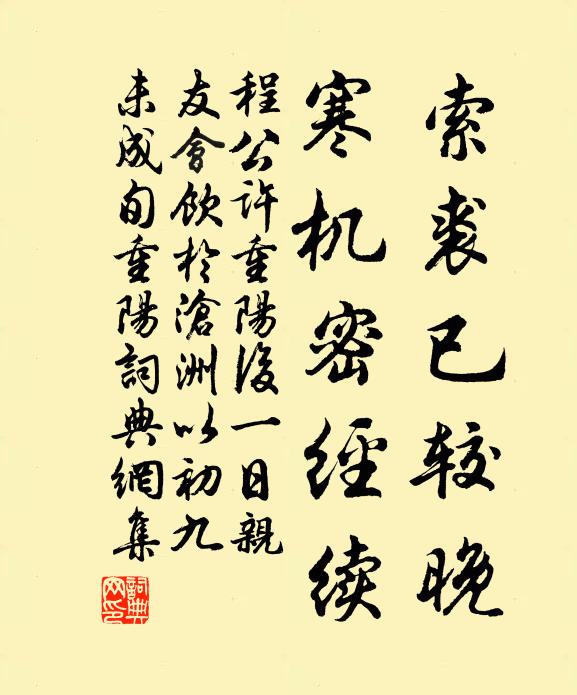 索裘已较晚
寒机密经续
程公许重陽後一日親
友會飲於滄洲以初九
未成旬重陽詞典網集
詞典網印